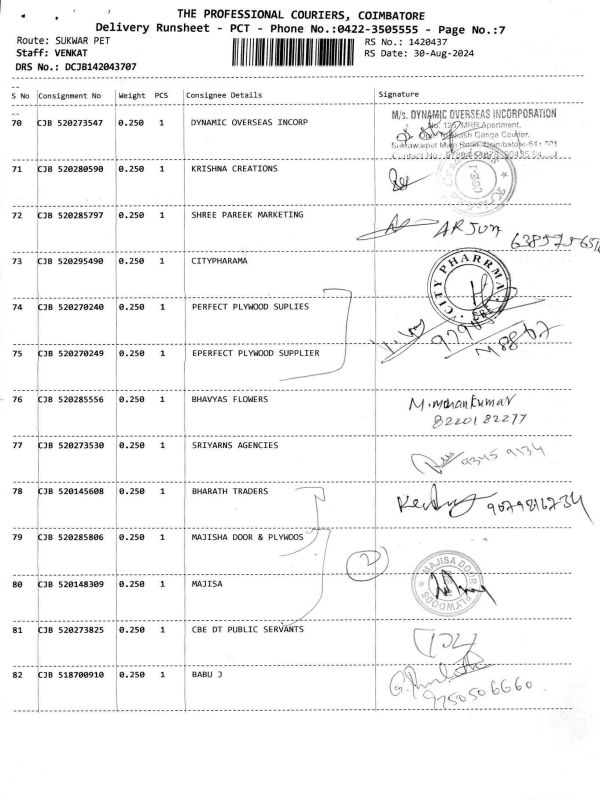 THE PROFESSIONAL COURIERS, COIMBATORE
Delivery Runsheet - PCT - Phone No.:0422-3505555 - Page No.:7
Route: SUKWAR PET
RS No.: 1420437
Staff: VENKAT
RS Date: 30-Aug-2024
DRS No.: DCJB142043707
S No Consignment No Weight PCS Consignee Details Signature
70 CJB 520273547 0.250 1 DYNAMIC OVERSEAS INCORP
M/s. DYNAMIC OVERSEAS INCORPORATION
MRR Apartment,
Akash Ganga Courier,
71 CJB 520280590 0.250 1 KRISHNA CREATIONS
72 CJB 520285797 0.250 1 SHREE PAREEK MARKETING
ARJUN
73 CJB 520295490 0.250 1 CITYPHARAMA
CITY PHARRMA
74 CJB 520270240 0.250 1 PERFECT PLYWOOD SUPLIES
75 CJB 520270249 0.250 1 EPERFECT PLYWOOD SUPPLIER
76 CJB 520285556 0.250 1 BHAVYAS FLOWERS
M. mohankumar
8220182277
77 CJB 520273530 0.250 1 SRIYARNS AGENCIES
78 CJB 520145608 0.250 1 BHARATH TRADERS
79 CJB 520285806 0.250 1 MAJISHA DOOR & PLYWOOS
2
MAJISA DOOR
PLYWOODS
80 CJB 520148309 0.250 1 MAJISA
81 CJB 520273825 0.250 1 CBE DT PUBLIC SERVANTS
82 CJB 518700910 0.250 1 BABU J
9750506660